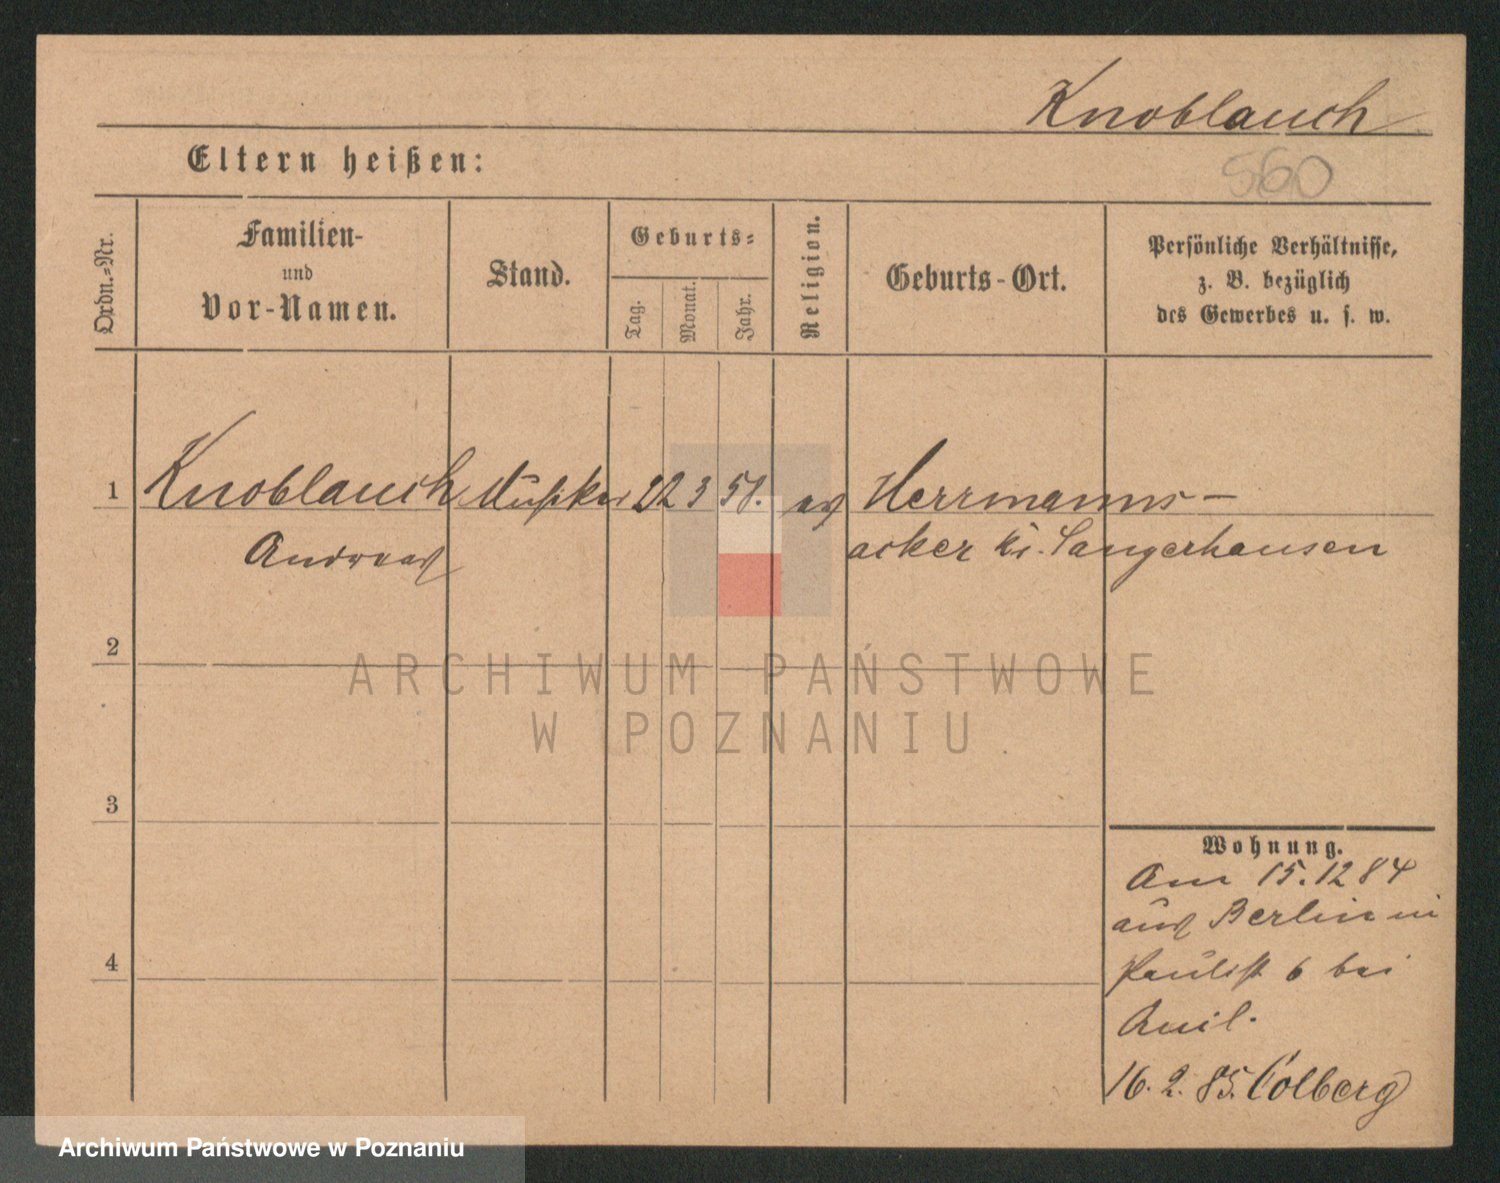 Knoblauch
Eltern heißen:
560
Ordn.-Nr.
Familien-
und
Vor-Namen.
Stand.
Geburts-
Tag.
Monat.
Jahr.
Religion.
Geburts-Ort.
Persönliche Verhältnisse,
z. B. bezüglich
des Gewerbes u. s. w.
1 Knoblauch Musiker 22 3 58. ev Herrmanns-
Andreas acker Kr. Sangerhausen
2
ARCHIWUM PAŃSTWOWE
W POZNANIU
3
Wohnung.
Am 15.12 84
aus Berlin in
Paulist 6 bei
4
16. 2. 85. Colberg
Archiwum Państwowe w Poznaniu